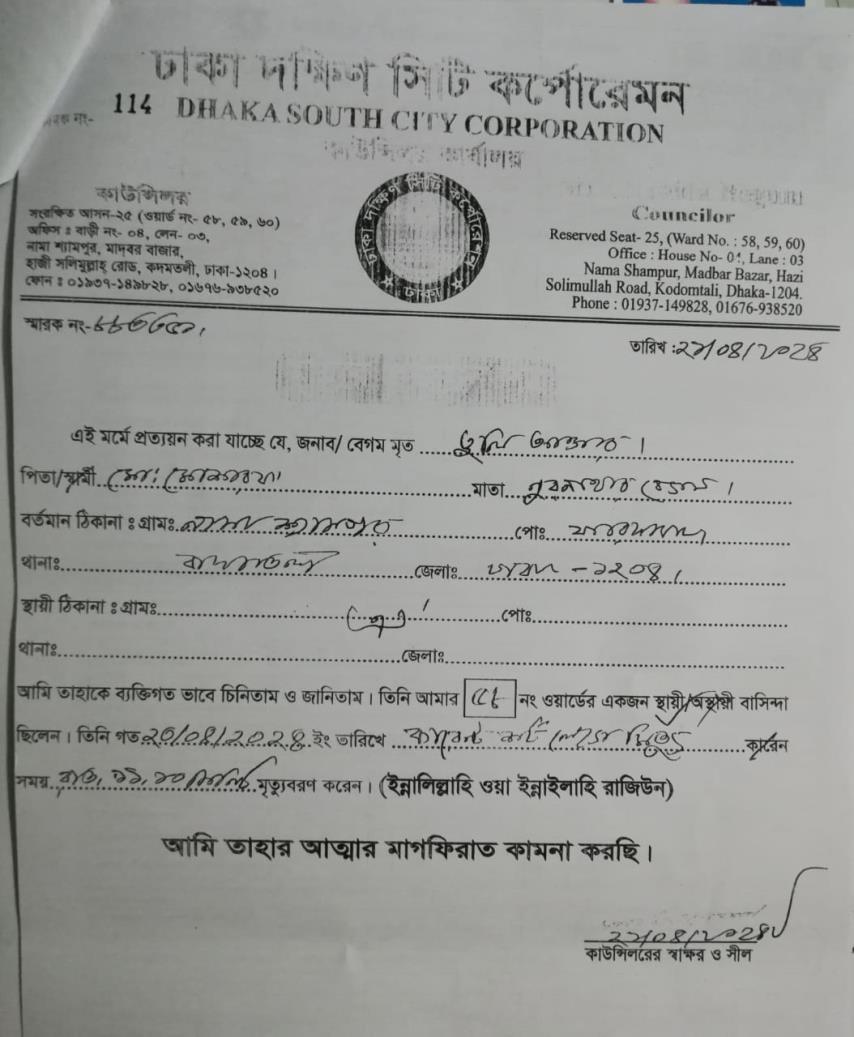 ঢাকা দক্ষিণ সিটি কর্পোরেশন
স্মারক নং- 114 DHAKA SOUTH CITY CORPORATION
কাউন্সিলর কার্যালয়
কাউন্সিলর
সংরক্ষিত আসন-২৫ (ওয়ার্ড নং- ৫৮, ৫৯, ৬০)
অফিস : বাড়ী নং- ০৪, লেন- ০৩,
নামা শ্যামপুর, মাদবর বাজার,
হাজী সলিমুল্লাহ রোড, কদমতলী, ঢাকা-১২০৪।
ফোন : ০১৯৩৭-১৪৯৮২৮, ০১৬৭৬-৯৩৮৫২০
ঢাকা দক্ষিণ সিটি কর্পোরেশন
ঢাকা
Councilor
Reserved Seat- 25, (Ward No. : 58, 59, 60)
Office : House No- 04, Lane : 03
Nama Shampur, Madbar Bazar, Hazi
Solimullah Road, Kodomtali, Dhaka-1204.
Phone : 01937-149828, 01676-938520
স্মারক নং-
তারিখ :২১/০৪/২০২৪
এই মর্মে প্রত্যয়ন করা যাচ্ছে যে, জনাব/ বেগম মৃত
পিতা/স্বামী মোঃ মাতা
বর্তমান ঠিকানা : গ্রামঃ নামা শ্যামপুর পোঃ
থানাঃ কদমতলী জেলাঃ ঢাকা - ১২০৪।
স্থায়ী ঠিকানা : গ্রামঃ ঐ। পোঃ
থানাঃ জেলাঃ
আমি তাহাকে ব্যক্তিগত ভাবে চিনিতাম ও জানিতাম। তিনি আমার ৫৮ নং ওয়ার্ডের একজন স্থায়ী/অস্থায়ী বাসিন্দা
ছিলেন। তিনি গত ২০/০৪/২০২৪ ইং তারিখে কারেন
সময় রাত, ১১,২০ মৃত্যুবরণ করেন। (ইন্নালিল্লাহি ওয়া ইন্নাইলাহি রাজিউন)
আমি তাহার আত্মার মাগফিরাত কামনা করছি।
২১/০৪/২০২৪
কাউন্সিলরের স্বাক্ষর ও সীল